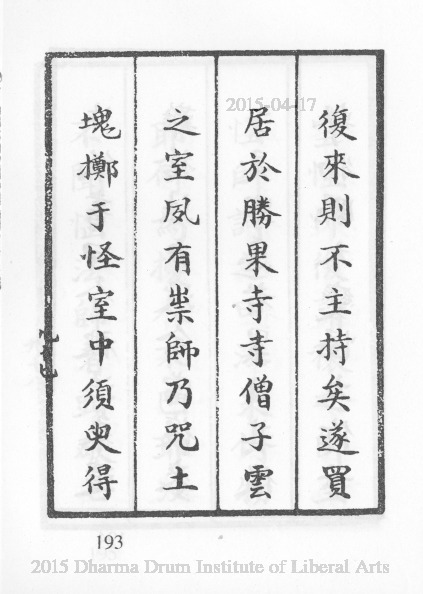 復來則不主持矣遂買
居於勝果寺寺僧子雲
之室夙有祟師乃咒土
塊擲于怪室中須臾得
193
2015-04-17
2015 Dharma Drum Institute of Liberal Arts